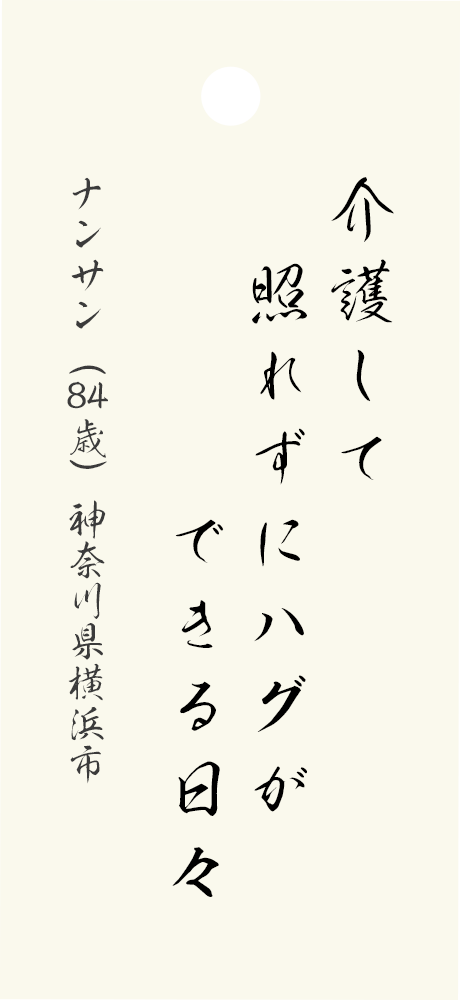 介護して
照れずにハグが
できる日々
ナンサン（84歳）神奈川県横浜市